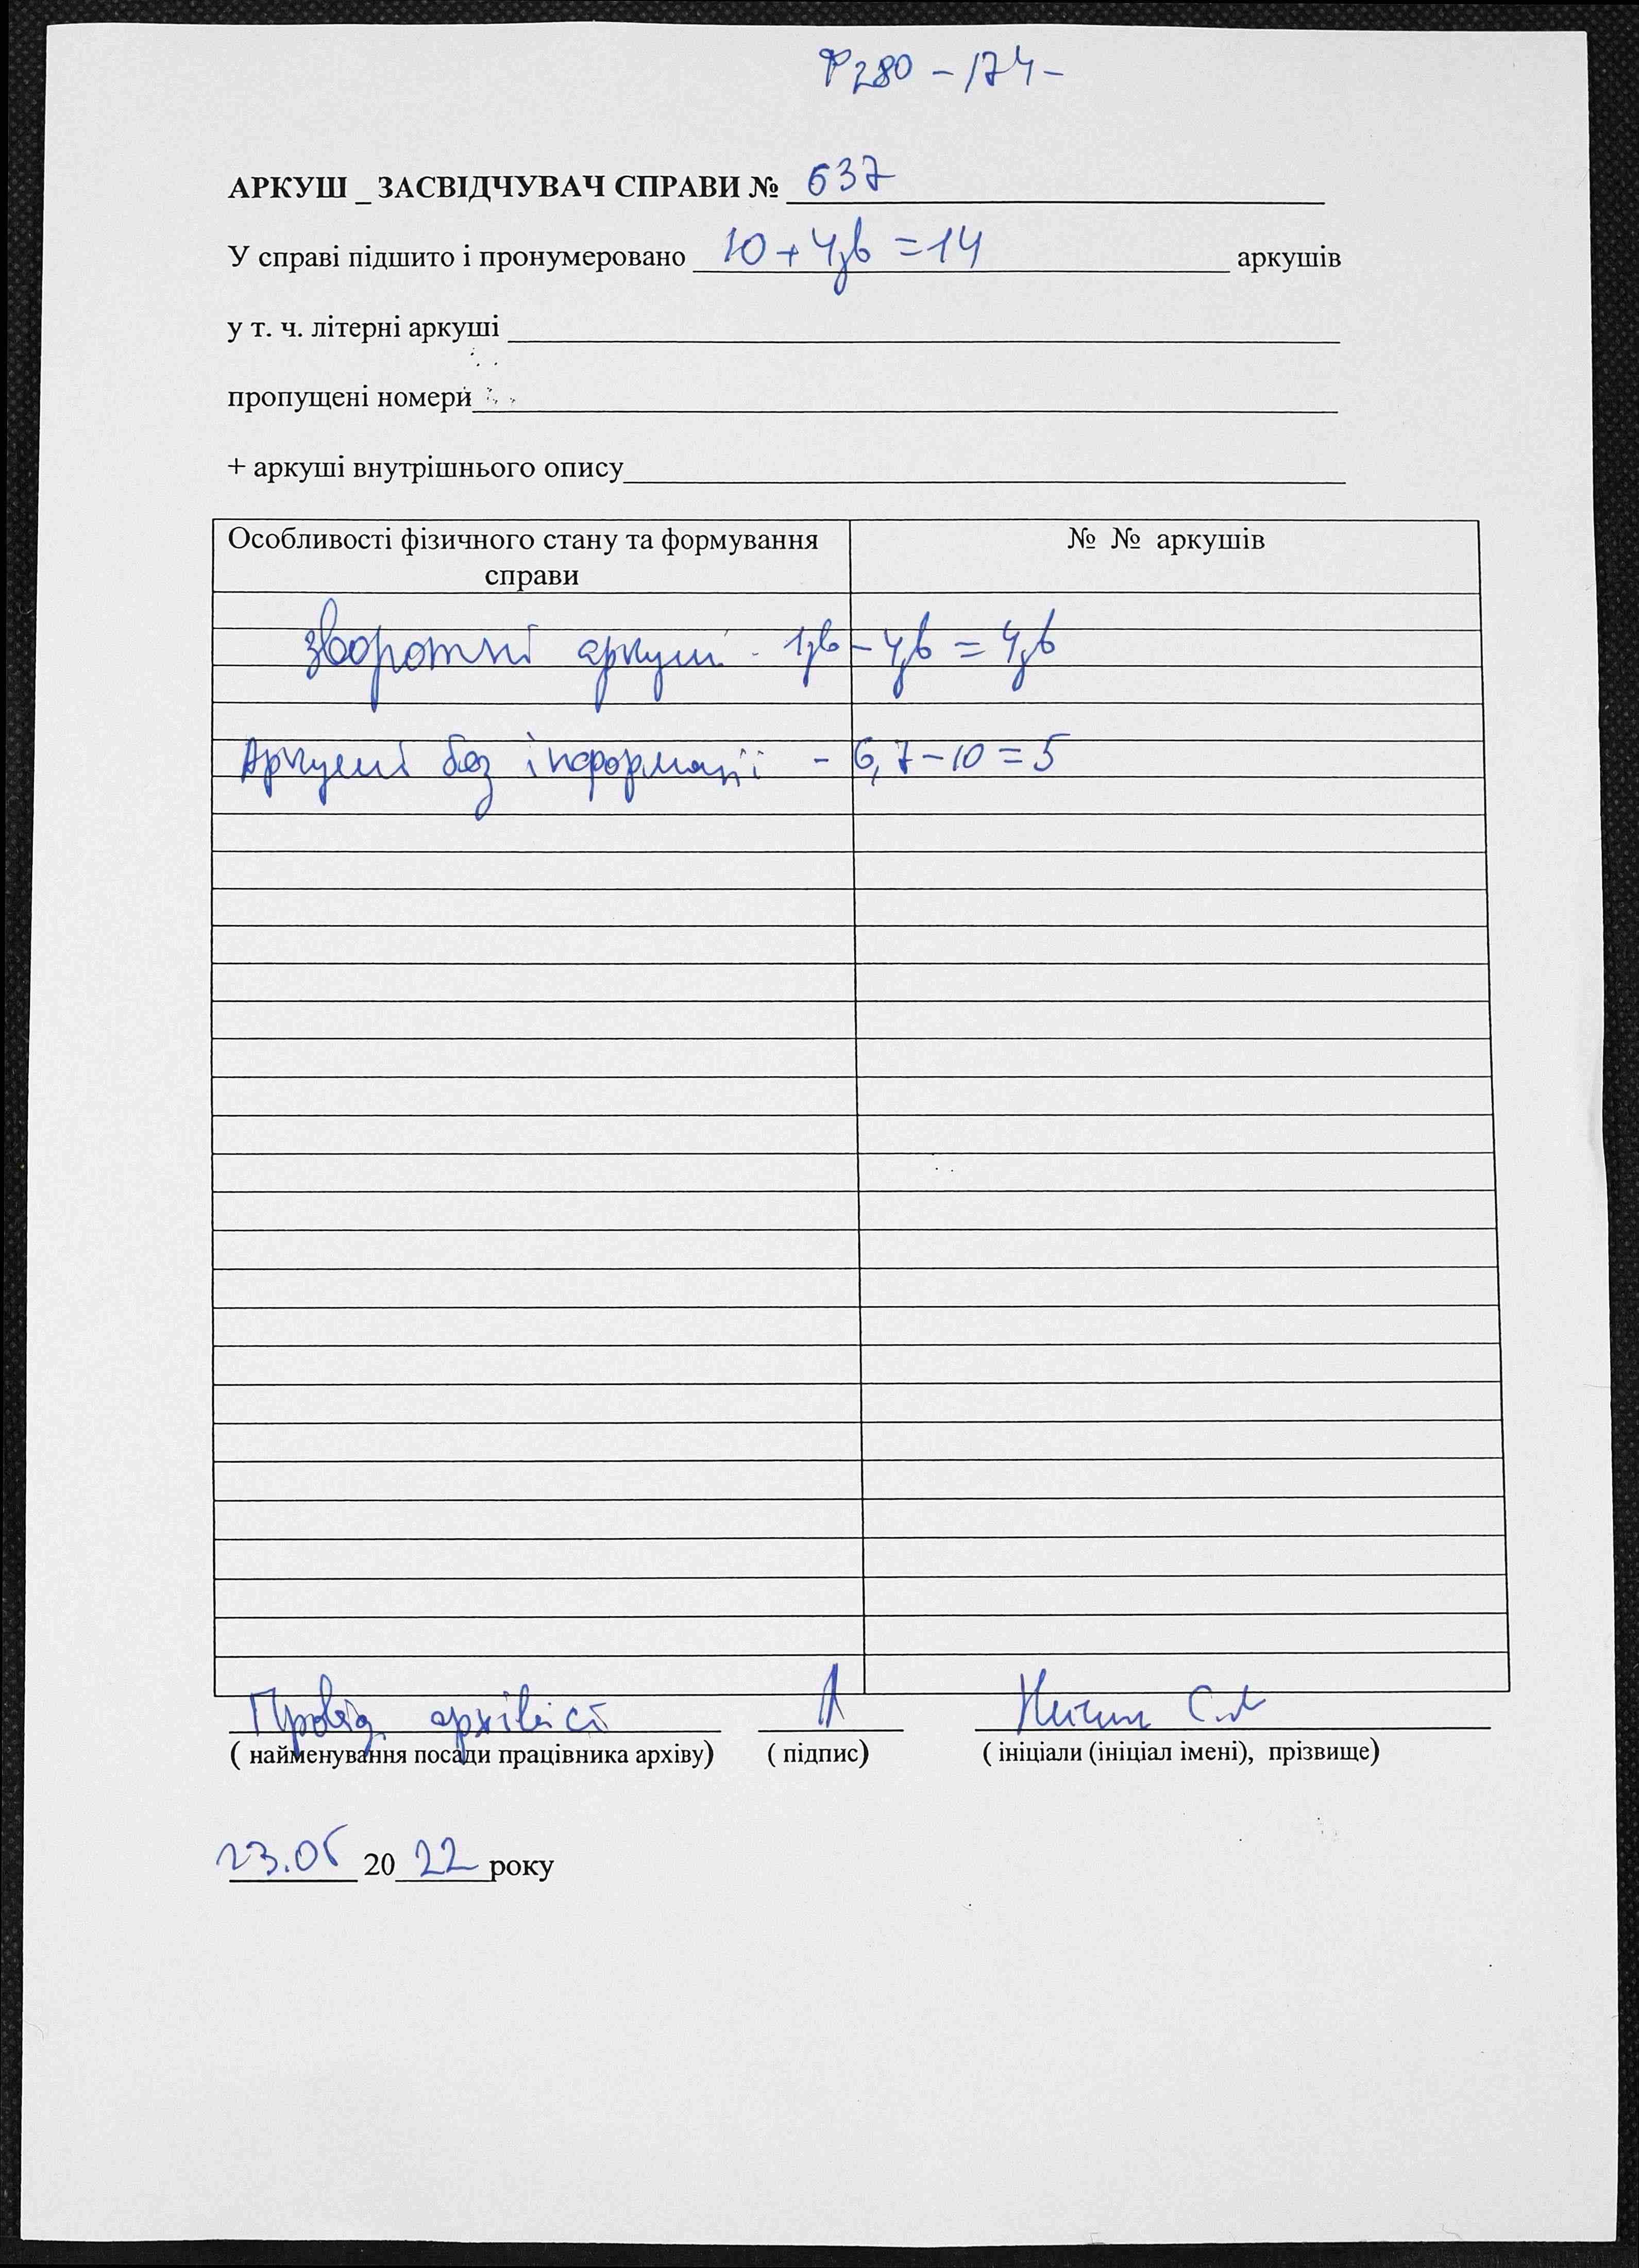 Ф280 - 174 -
АРКУШ _ ЗАСВІДЧУВАЧ СПРАВИ № 637
У справі підшито і пронумеровано 10 + 4зв = 14 аркушів
у т. ч. літерні аркуші
пропущені номери
+ аркуші внутрішнього опису
Особливості фізичного стану та формування справи № № аркушів
зворотні аркуші - 1зв - 4зв = 4зв
Аркуші без інформації - 6, 7 - 10 = 5
Провід. архівіст
( найменування посади працівника архіву) ( підпис) ( ініціали (ініціал імені), прізвище)
20 22 року